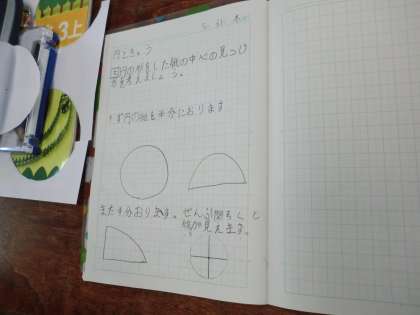 3上
円ときゅう
円の形をした紙の中心の見つけ
方を考えましょう。
まず円の紙を半分におります
また半分おります。
ぜんぶ開らくと
線が見えます。